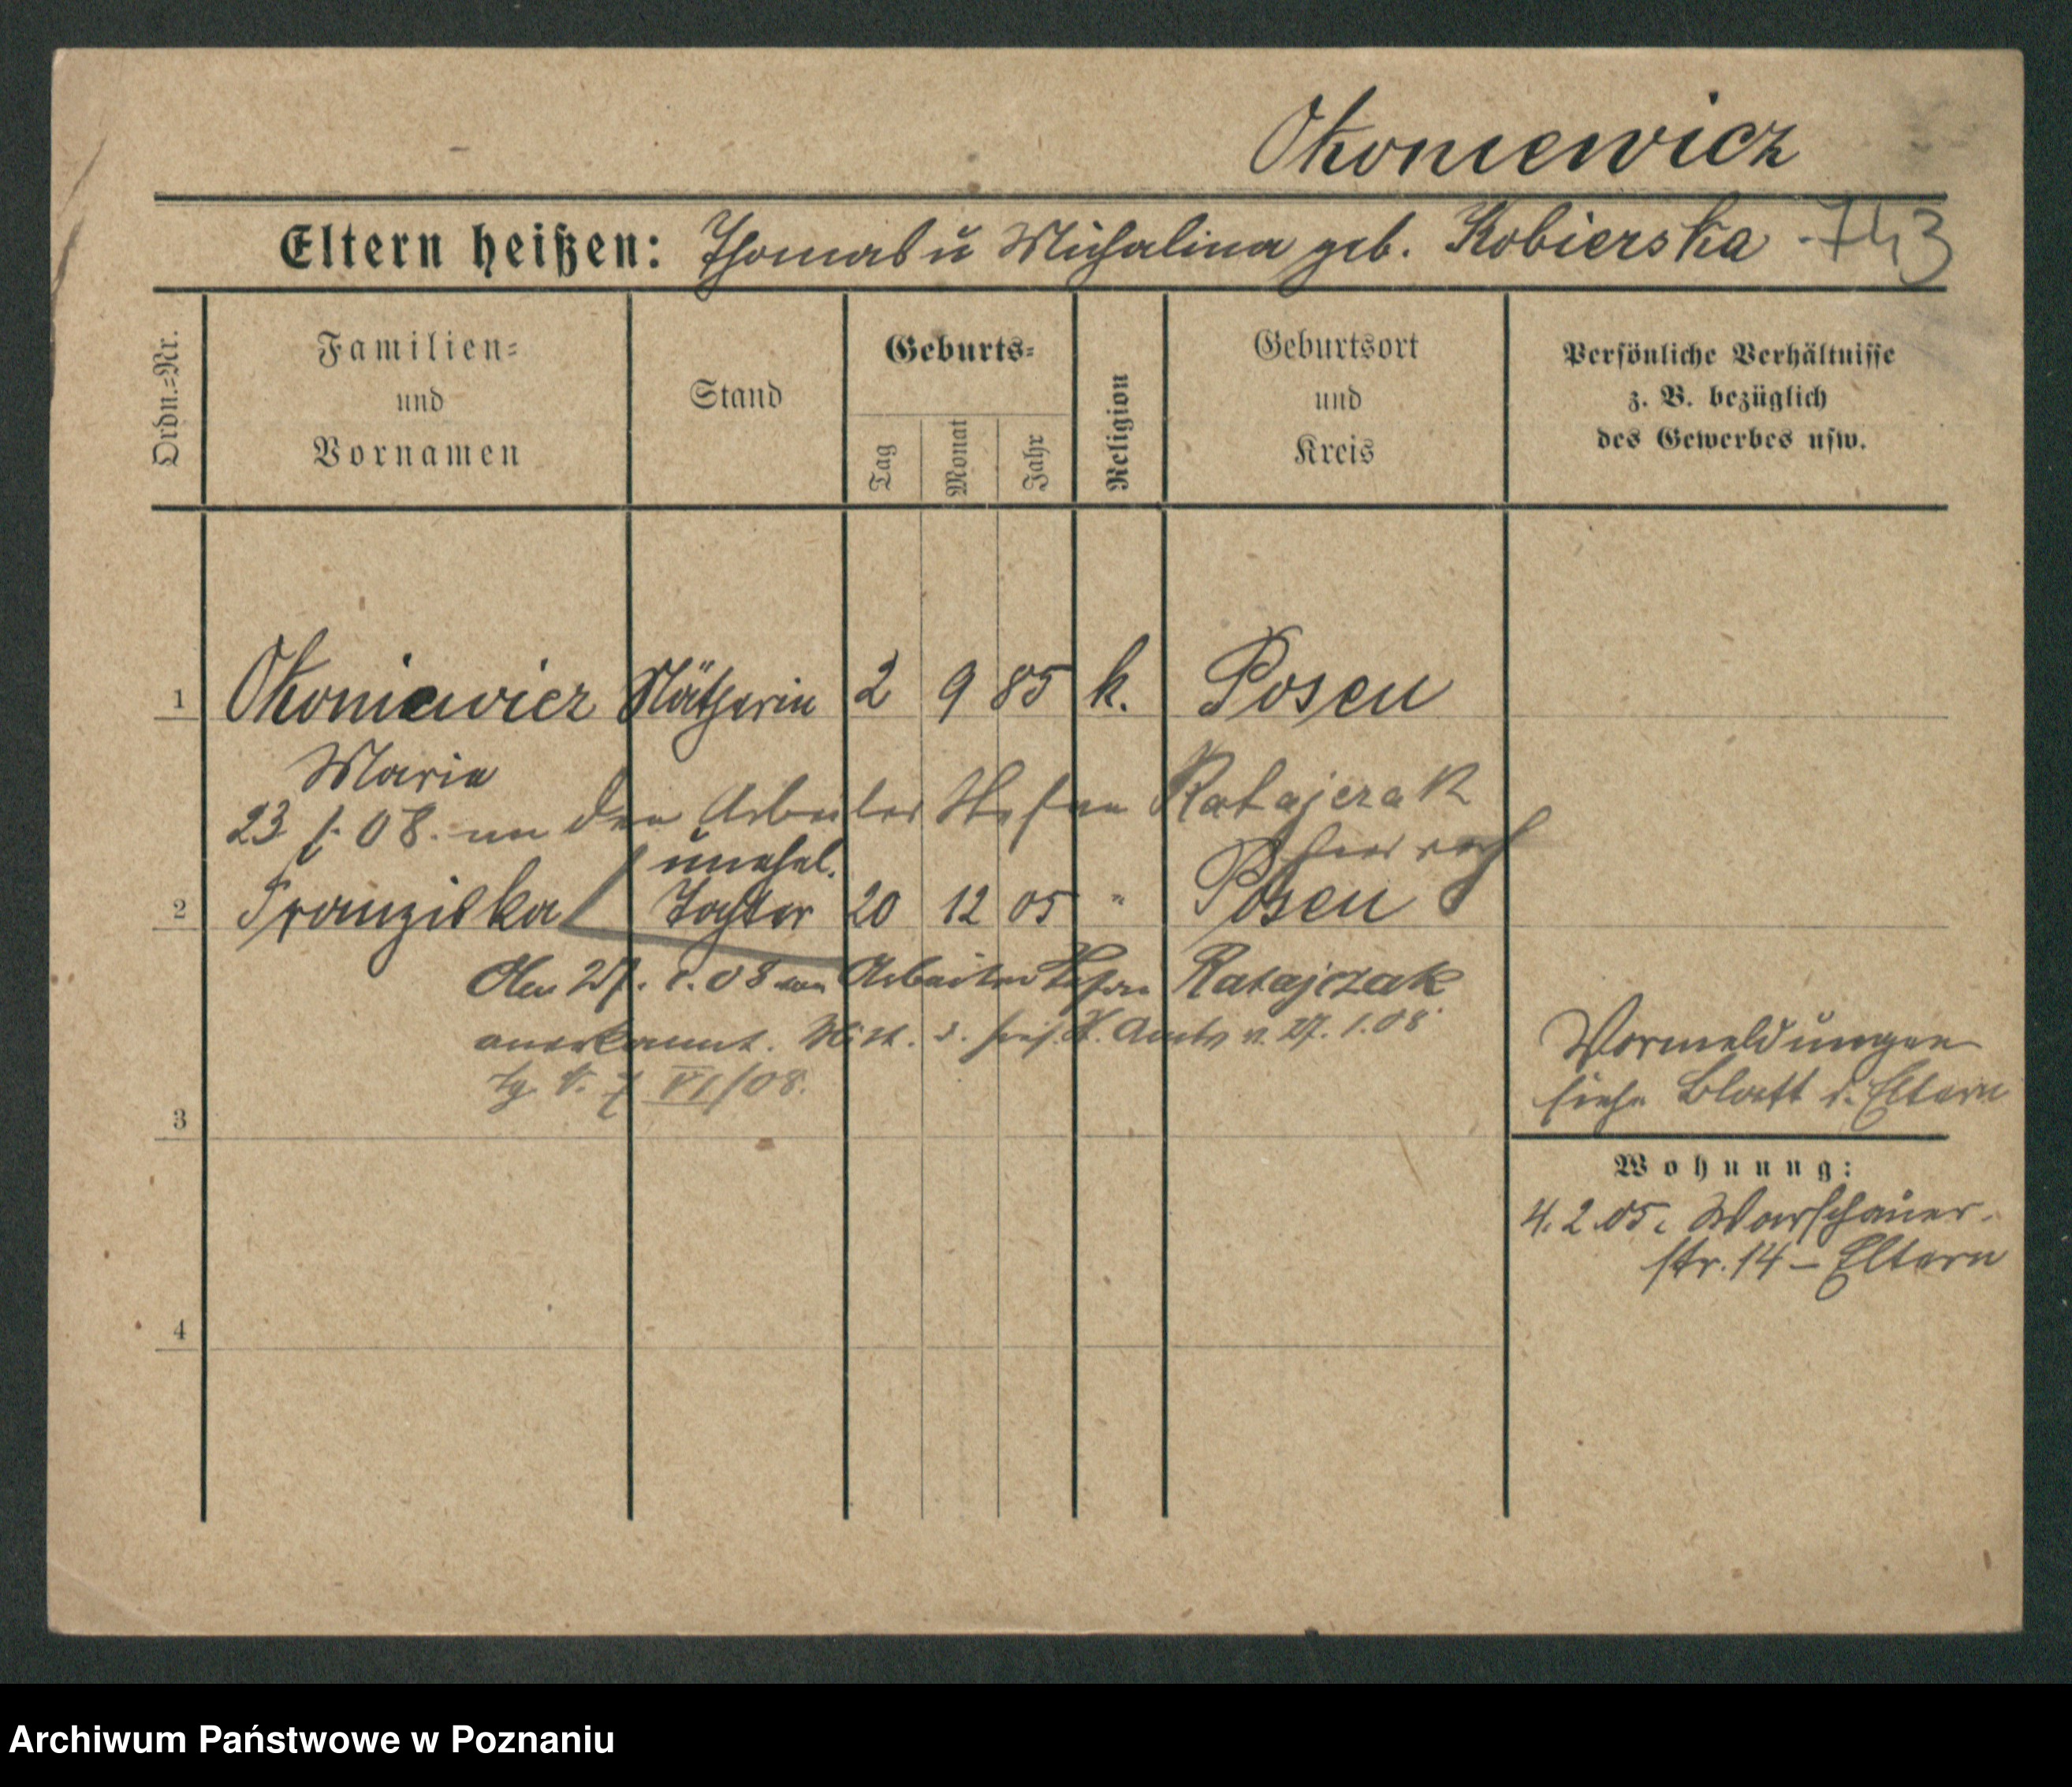 Okoniewicz
Eltern heißen: Thomas u Michalina geb. Kobierska 743
Ordn.=Nr.
Familien=
und
Vornamen
Stand
Geburts=
Tag
Monat
Jahr
Religion
Geburtsort
und
Kreis
Persönliche Verhältnisse
z. B. bezüglich
des Gewerbes usw.
1 Okoniewicz Nätherin 2 9 85 k. Posen
Marie
23 1. 08. an den Arbeiter Stefan Ratajczak
hier verh
unehel.
2 Franziska Tochter 20 12 05 " Posen
27. 1. 08 von Arbeiter Stefan Ratajczak
anerkannt. St. Amts v. 27. 1. 08.
VI/08.
3
Vormeldungen
siehe Blatt d. Eltern
Wohnung:
4. 2. 05. Warschauer-
str. 14 – Eltern
4
Archiwum Państwowe w Poznaniu